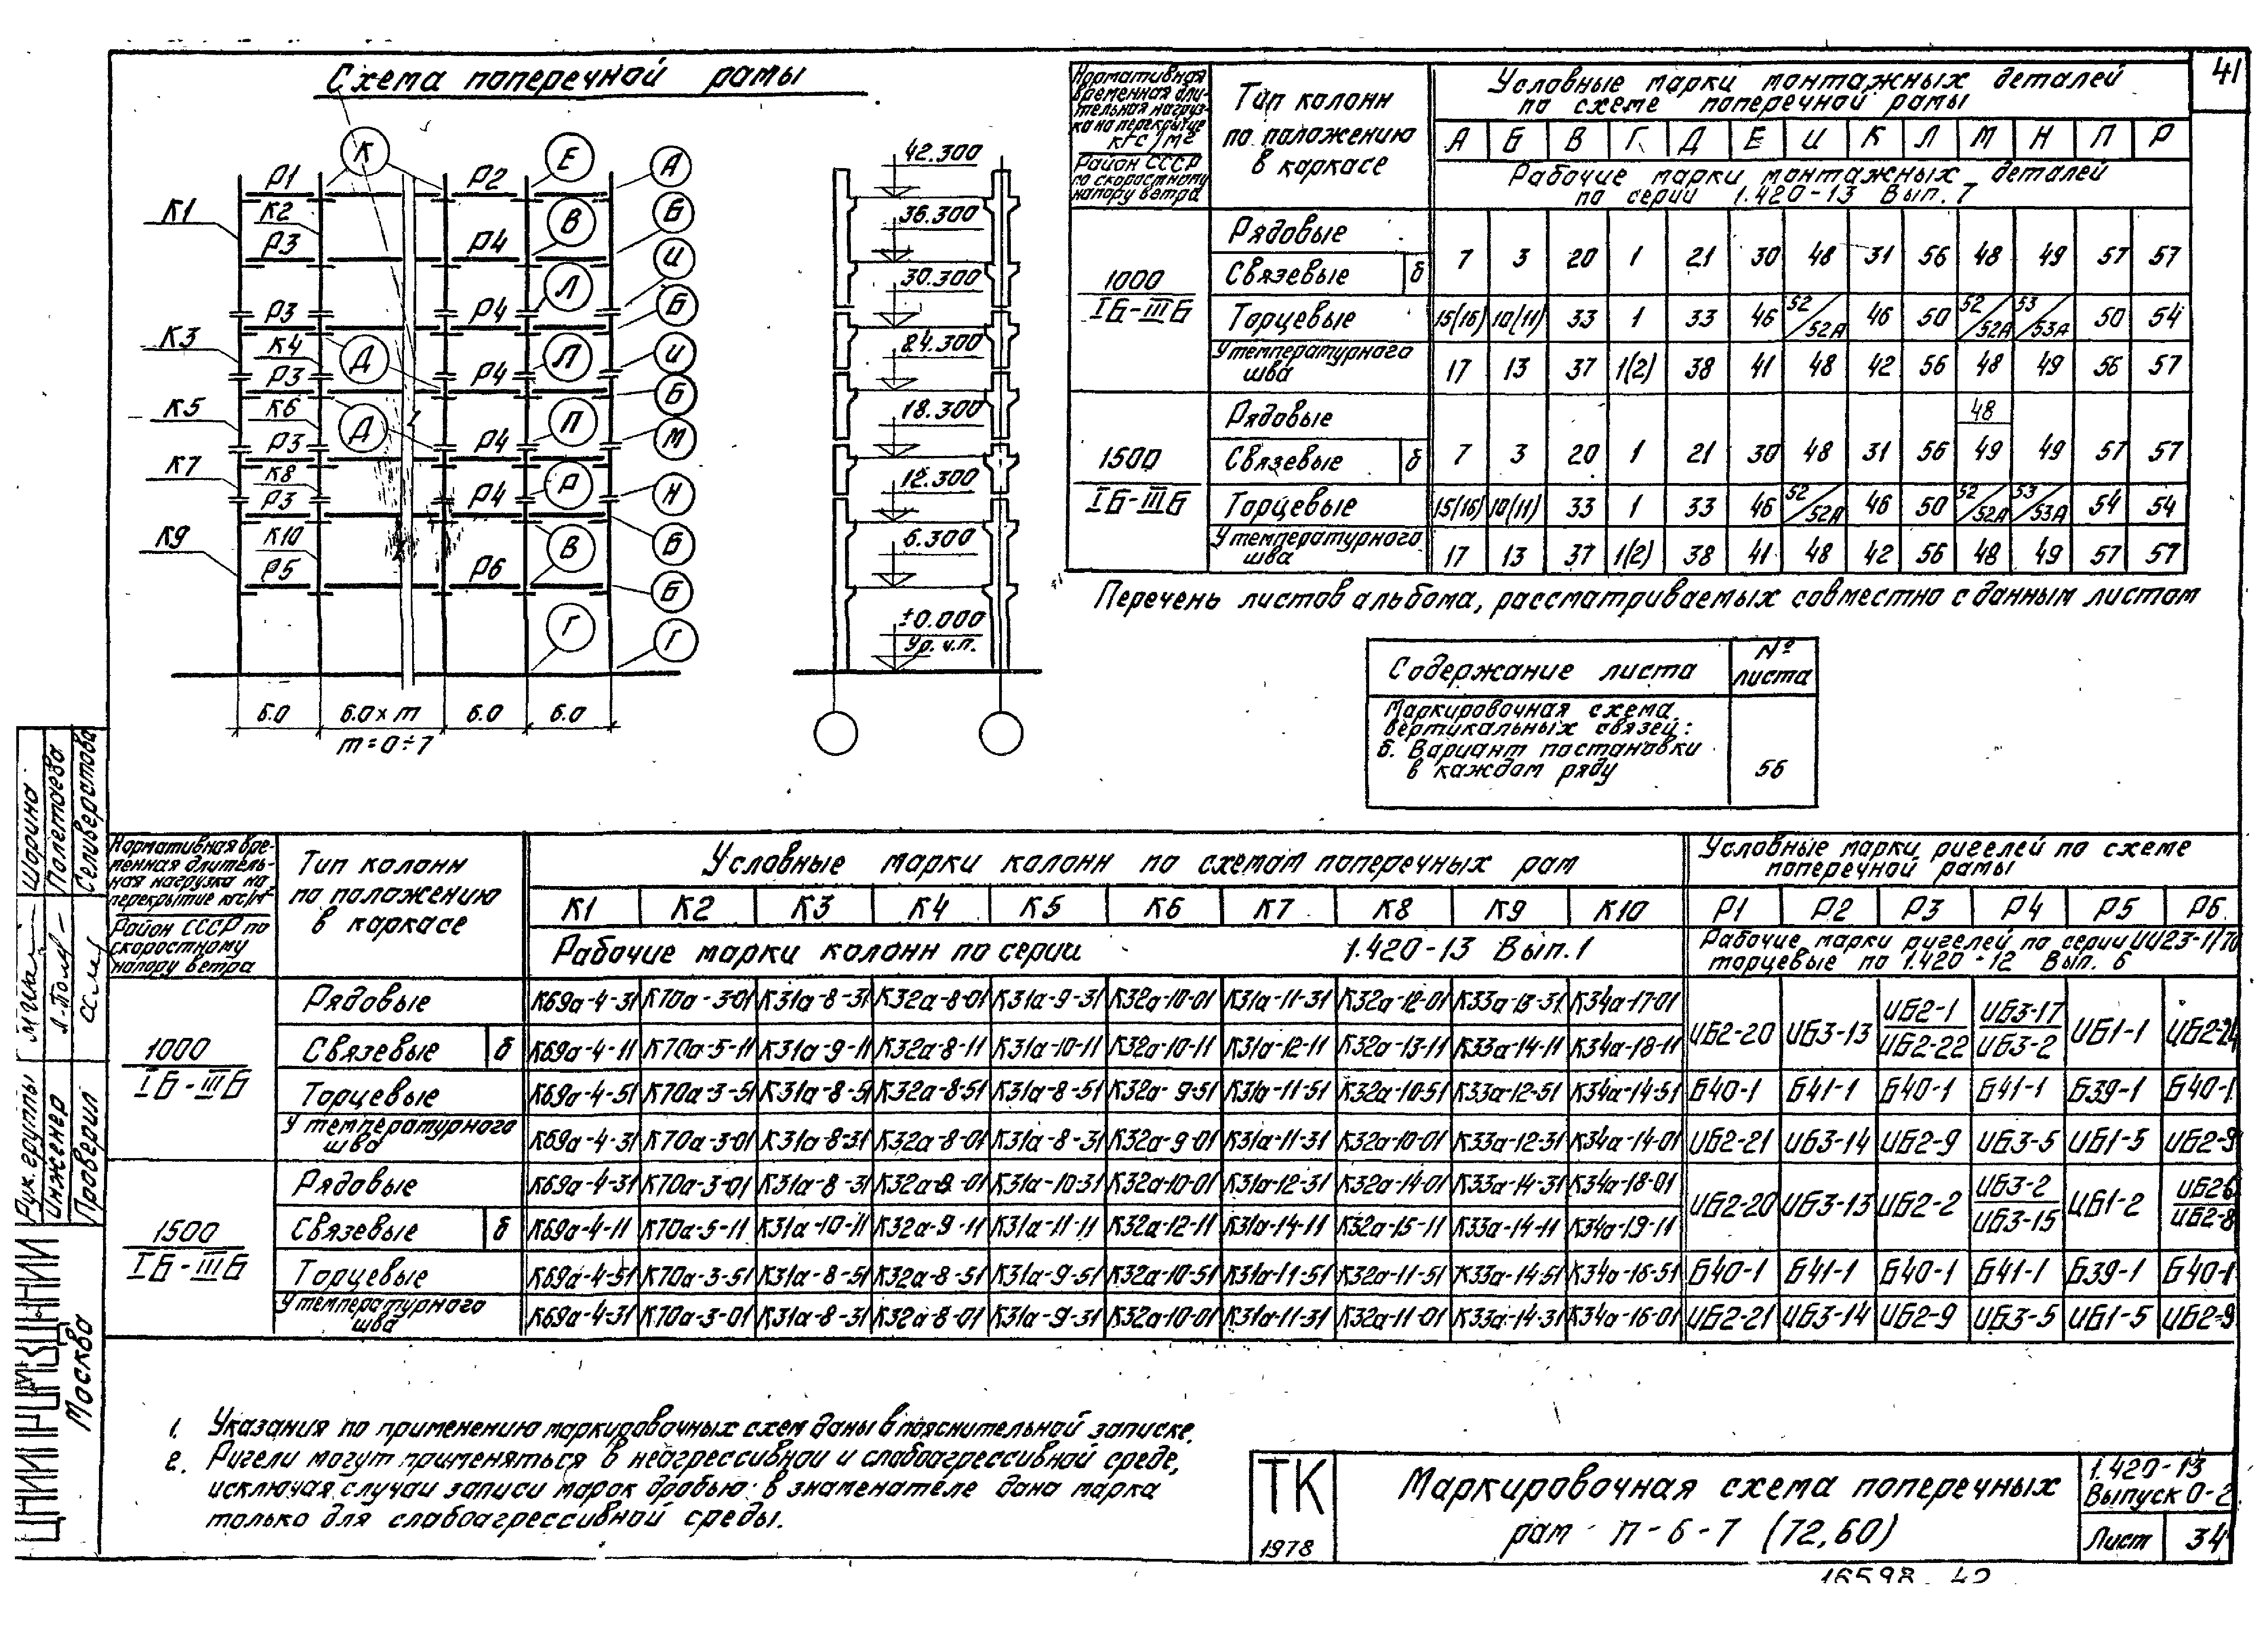 41
Схема поперечной рамы
К Е А
Р1 Р2
К1 К2 В Б
Р3 Р4 И
Л Б
Р3 Р4
К3 К4 Д Л И
Р3 Р4 Б
К5 К6 Д П М
Р3 Р4
К7 К8 Р Н
Р3 Р4
К9 К10 В Б
Р5 Р6 Б
Г Г
6.0 6.0×m 6.0 6.0
m=0÷7
42.300
36.300
30.300
24.300
18.300
12.300
6.300
±0.000
Ур. ч.п.
Нормативная временная длительная нагрузка на перекрытие кгс/м²
Район СССР по скоростному напору ветра
Тип колонн по положению в каркасе
Условные марки монтажных деталей
по схеме поперечной рамы
А Б В Г Д Е И К Л М Н П Р
Рабочие марки монтажных деталей
по серии 1.420-13 Вып. 7
1000
IБ-IIIБ
Рядовые
Связевые б
7 3 20 1 21 30 48 31 56 48 49 57 57
Торцевые 15(16) 10(11) 33 1 33 46 52/52А 46 50 52/52А 53/53А 50 54
У температурного шва 17 13 37 1(2) 38 41 48 42 56 48 49 56 57
1500
IБ-IIIБ
Рядовые
Связевые б
7 3 20 1 21 30 48 31 56 48/49 49 57 57
Торцевые 15(16) 10(11) 33 1 33 46 52/52А 46 50 52/52А 53/53А 54 54
У температурного шва 17 13 37 1(2) 38 41 48 42 56 48 49 57 57
Перечень листов альбома, рассматриваемых совместно с данным листом
Содержание листа № листа
Маркировочная схема
вертикальных связей:
б. Вариант постановки
в каждом ряду 56
Нормативная временная длительная нагрузка на перекрытие кгс/м²
Район СССР по скоростному напору ветра
Тип колонн по положению в каркасе
Условные марки колонн по схемам поперечных рам
Условные марки ригелей по схеме
поперечной рамы
К1 К2 К3 К4 К5 К6 К7 К8 К9 К10 Р1 Р2 Р3 Р4 Р5 Р6
Рабочие марки колонн по серии 1.420-13 Вып.1
Рабочие марки ригелей по серии ИИ23-1/70
торцевые по 1.420-12 Вып. 6
1000
IБ-IIIБ
Рядовые К69а-4-31 К70а-3-01 К31а-8-31 К32а-8-01 К31а-9-31 К32а-10-01 К31а-11-31 К32а-12-01 К33а-13-31 К34а-17-01
Связевые б К69а-4-11 К70а-5-11 К31а-9-11 К32а-8-11 К31а-10-11 К32а-10-11 К31а-12-11 К32а-13-11 К33а-14-11 К34а-18-11
ИБ2-20 ИБ3-13 ИБ2-1/ИБ2-22 ИБ3-17/ИБ3-2 ИБ1-1 ИБ2-24
Торцевые К69а-4-51 К70а-3-51 К31а-8-51 К32а-8-51 К31а-8-51 К32а-9-51 К31а-11-51 К32а-10-51 К33а-12-51 К34а-14-51 Б40-1 Б41-1 Б40-1 Б41-1 Б39-1 Б40-1
У температурного шва К69а-4-31 К70а-3-01 К31а-8-31 К32а-8-01 К31а-8-31 К32а-9-01 К31а-11-31 К32а-10-01 К33а-12-31 К34а-14-01 ИБ2-21 ИБ3-14 ИБ2-9 ИБ3-5 ИБ1-5 ИБ2-9
1500
IБ-IIIБ
Рядовые К69а-4-31 К70а-3-01 К31а-8-31 К32а-8-01 К31а-10-31 К32а-10-01 К31а-12-31 К32а-14-01 К33а-14-31 К34а-18-01
Связевые б К69а-4-11 К70а-5-11 К31а-10-11 К32а-9-11 К31а-11-11 К32а-12-11 К31а-14-11 К32а-15-11 К33а-14-11 К34а-19-11
ИБ2-20 ИБ3-13 ИБ2-2 ИБ3-2/ИБ3-15 ИБ1-2 ИБ2-6/ИБ2-8
Торцевые К69а-4-51 К70а-3-51 К31а-8-51 К32а-8-51 К31а-9-51 К32а-10-51 К31а-11-51 К32а-11-51 К33а-14-51 К34а-16-51 Б40-1 Б41-1 Б40-1 Б41-1 Б39-1 Б40-1
У температурного шва К69а-4-31 К70а-3-01 К31а-8-31 К32а-8-01 К31а-9-31 К32а-10-01 К31а-11-31 К32а-11-01 К33а-14-31 К34а-16-01 ИБ2-21 ИБ3-14 ИБ2-9 ИБ3-5 ИБ1-5 ИБ2-9
1. Указания по применению маркировочных схем даны в пояснительной записке.
2. Ригели могут применяться в неагрессивной и слабоагрессивной среде,
исключая случаи записи марок дробью: в знаменателе дана марка
только для слабоагрессивной среды.
ТК
1978
Маркировочная схема поперечных
рам П-6-7 (72,60)
1.420-13
Выпуск 0-2
Лист 34
16598 42
Рук. группы Шорина
Инженер Полетаева
Проверил Селиверстова
ЦНИИПРОМЗДАНИЙ
Москва